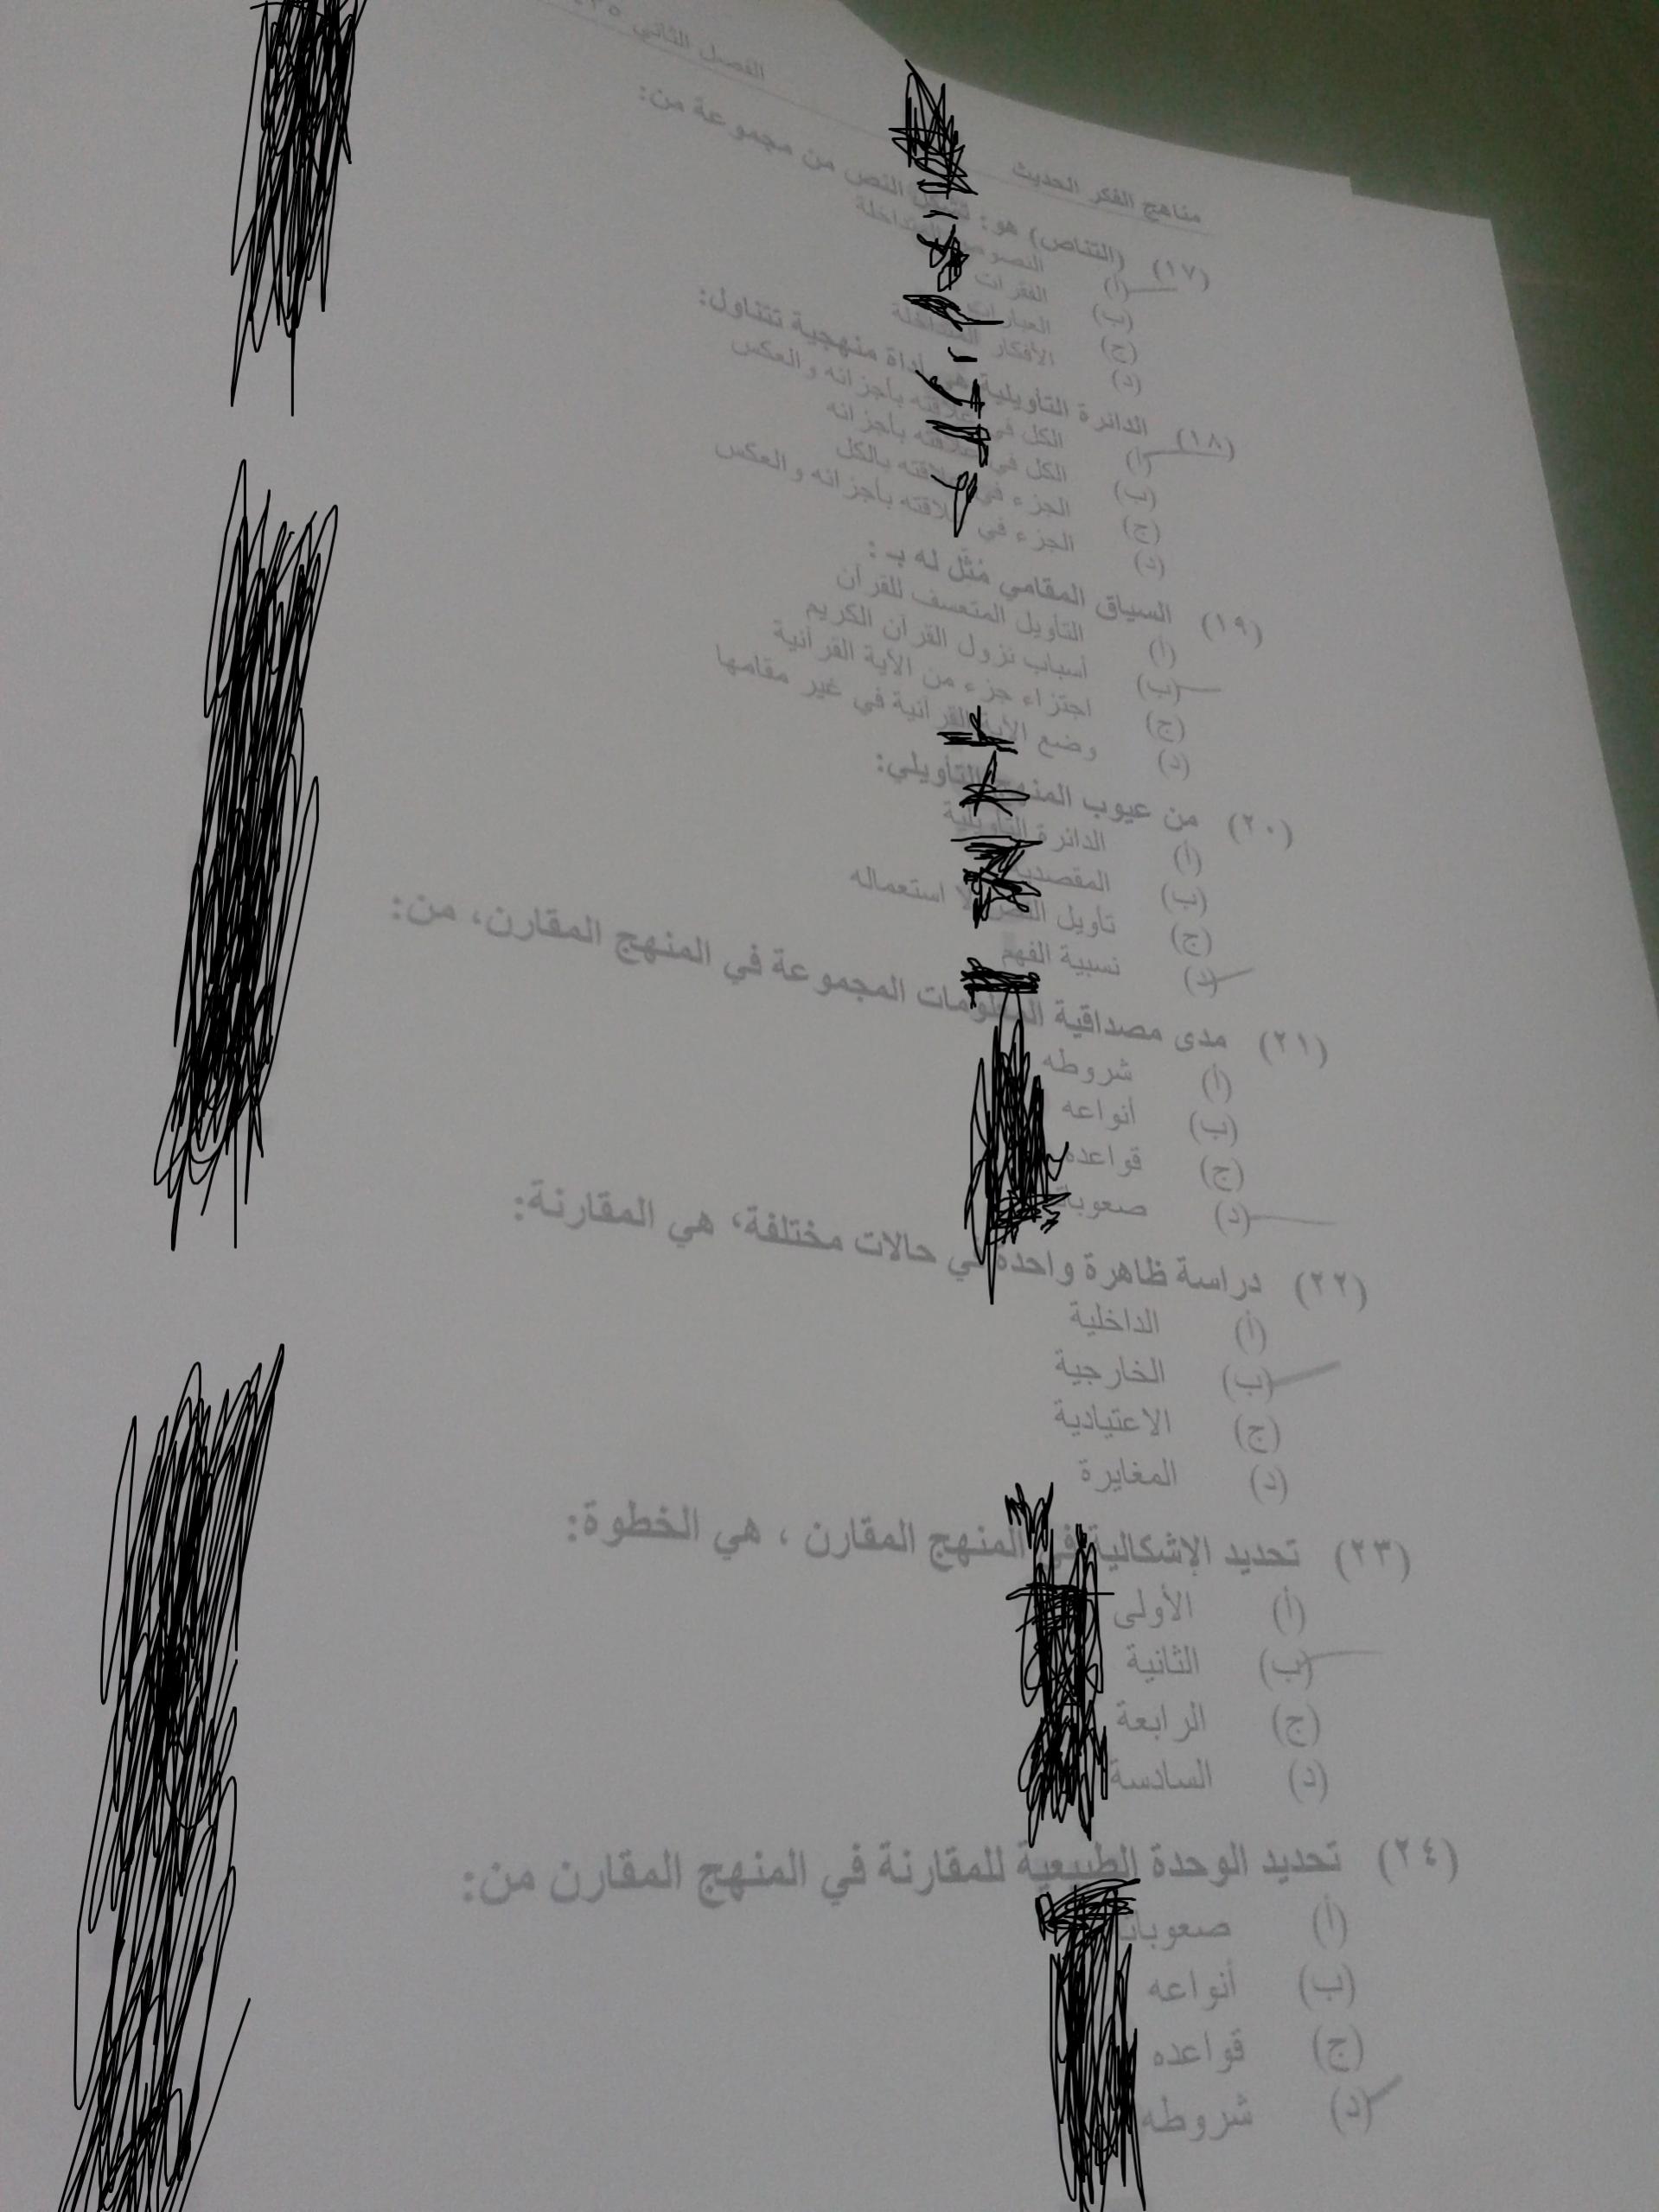 مناهج الفكر الحديث
الفصل الثاني
(١٧) (التناص) هو: تشكل النص من مجموعة من:
(أ) النصوص المتداخلة
(ب) الفقرات
(ج) العبارات
(د) الأفكار المتداخلة
(١٨) الدائرة التأويلية هي أداة منهجية تتناول:
(أ) الكل في علاقته بأجزائه والعكس
(ب) الكل في علاقته بأجزائه
(ج) الجزء في علاقته بالكل
(د) الجزء في علاقته بأجزائه والعكس
(١٩) السياق المقامي مُثّل له بـ:
(أ) التأويل المتعسف للقرآن
(ب) أسباب نزول القرآن الكريم
(ج) اجتزاء جزء من الآية القرآنية
(د) وضع الآية القرآنية في غير مقامها
(٢٠) من عيوب المنهج التأويلي:
(أ) الدائرة التأويلية
(ب) المقصدية
(ج) تأويل النص لا استعماله
(د) نسبية الفهم
(٢١) مدى مصداقية المعلومات المجموعة في المنهج المقارن، من:
(أ) شروطه
(ب) أنواعه
(ج) قواعده
(د)
(٢٢) دراسة ظاهرة واحدة في حالات مختلفة، هي المقارنة:
(أ) الداخلية
(ب) الخارجية
(ج) الاعتيادية
(د) المغايرة
(٢٣) تحديد الإشكالية في المنهج المقارن ، هي الخطوة:
(أ) الأولى
(ب) الثانية
(ج) الرابعة
(د) السادسة
(٢٤) تحديد الوحدة الطبيعية للمقارنة في المنهج المقارن من:
(أ)
(ب) أنواعه
(ج) قواعده
(د) شروطه